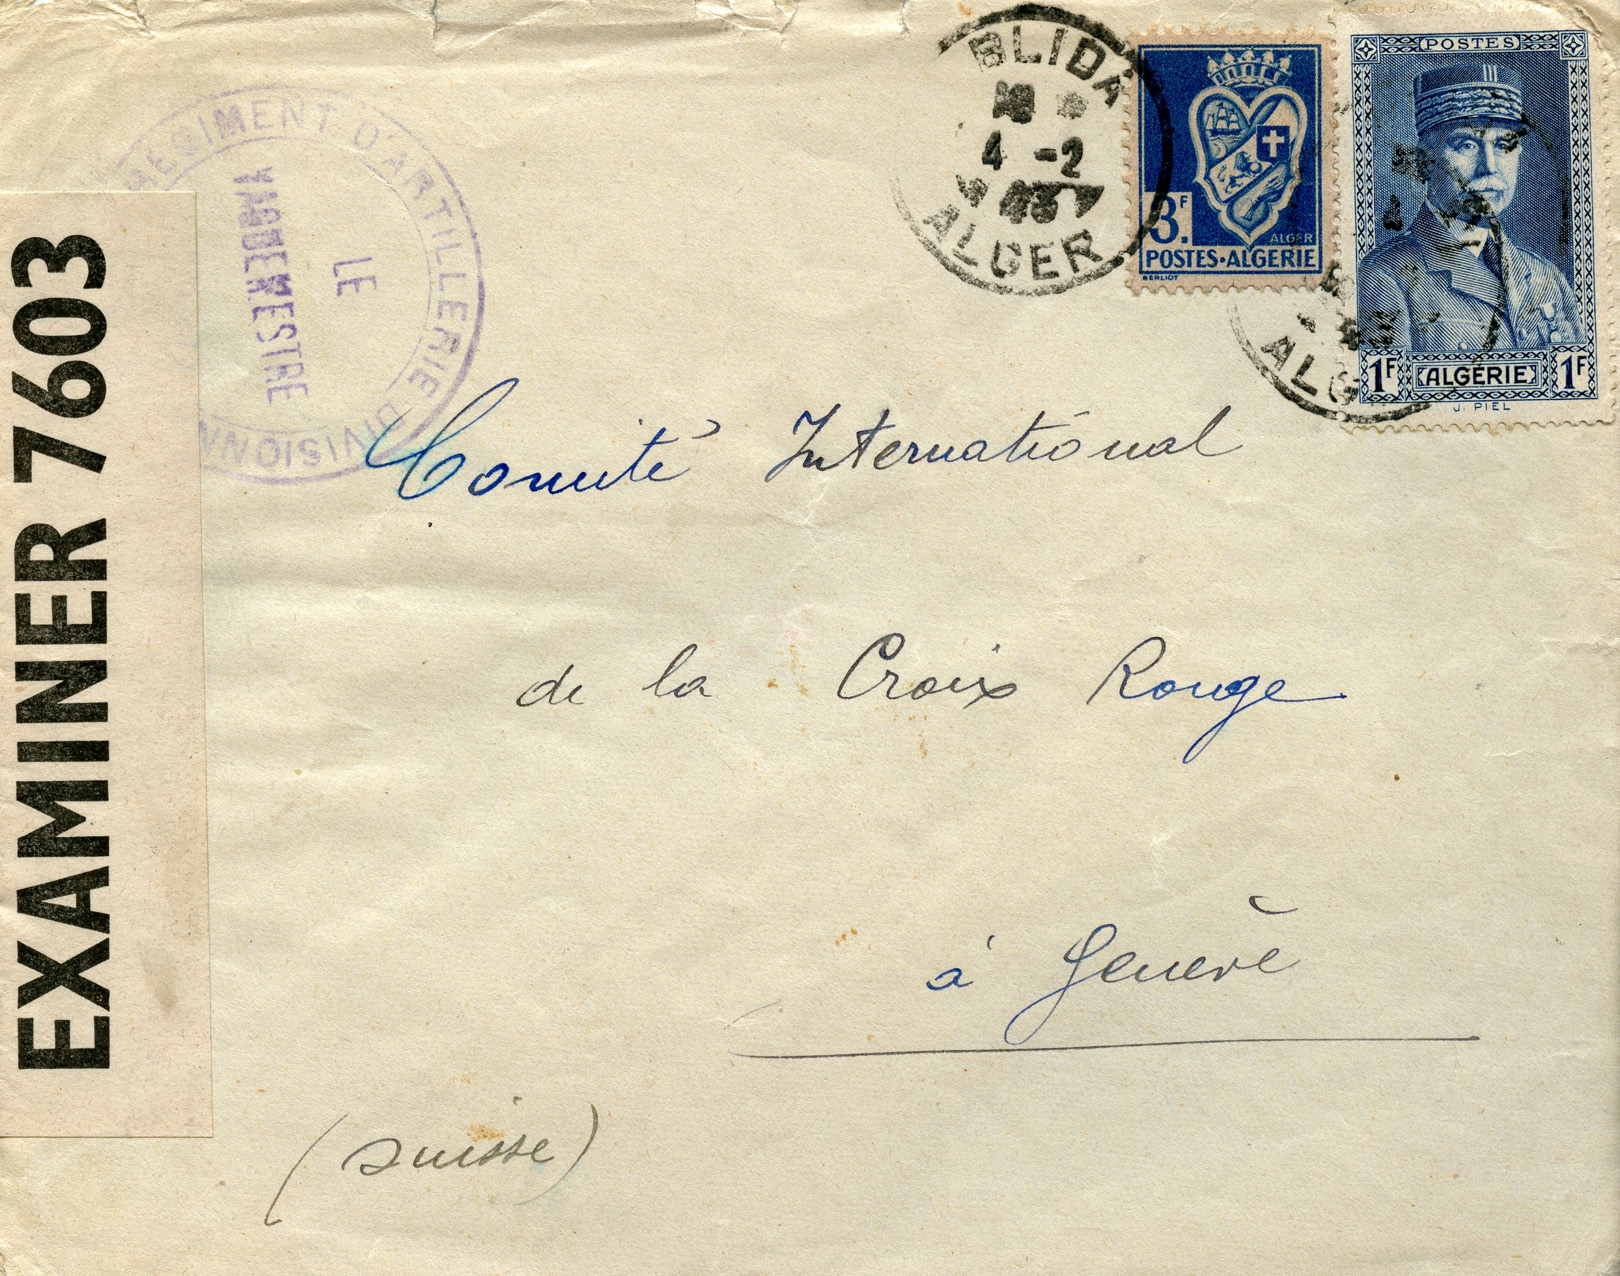 REGIMENT D'ARTILLERIE DIVISIONN
LE
VAGUEMESTRE
BLIDA
4 -2
43
ALGER
3F.
ALGER
POSTES-ALGERIE
BERLIOT
POSTES
1F ALGÉRIE 1F
J. PIEL
ALG
EXAMINER 7603
Comité International
de la Croix Rouge
à Genève
(Suisse)